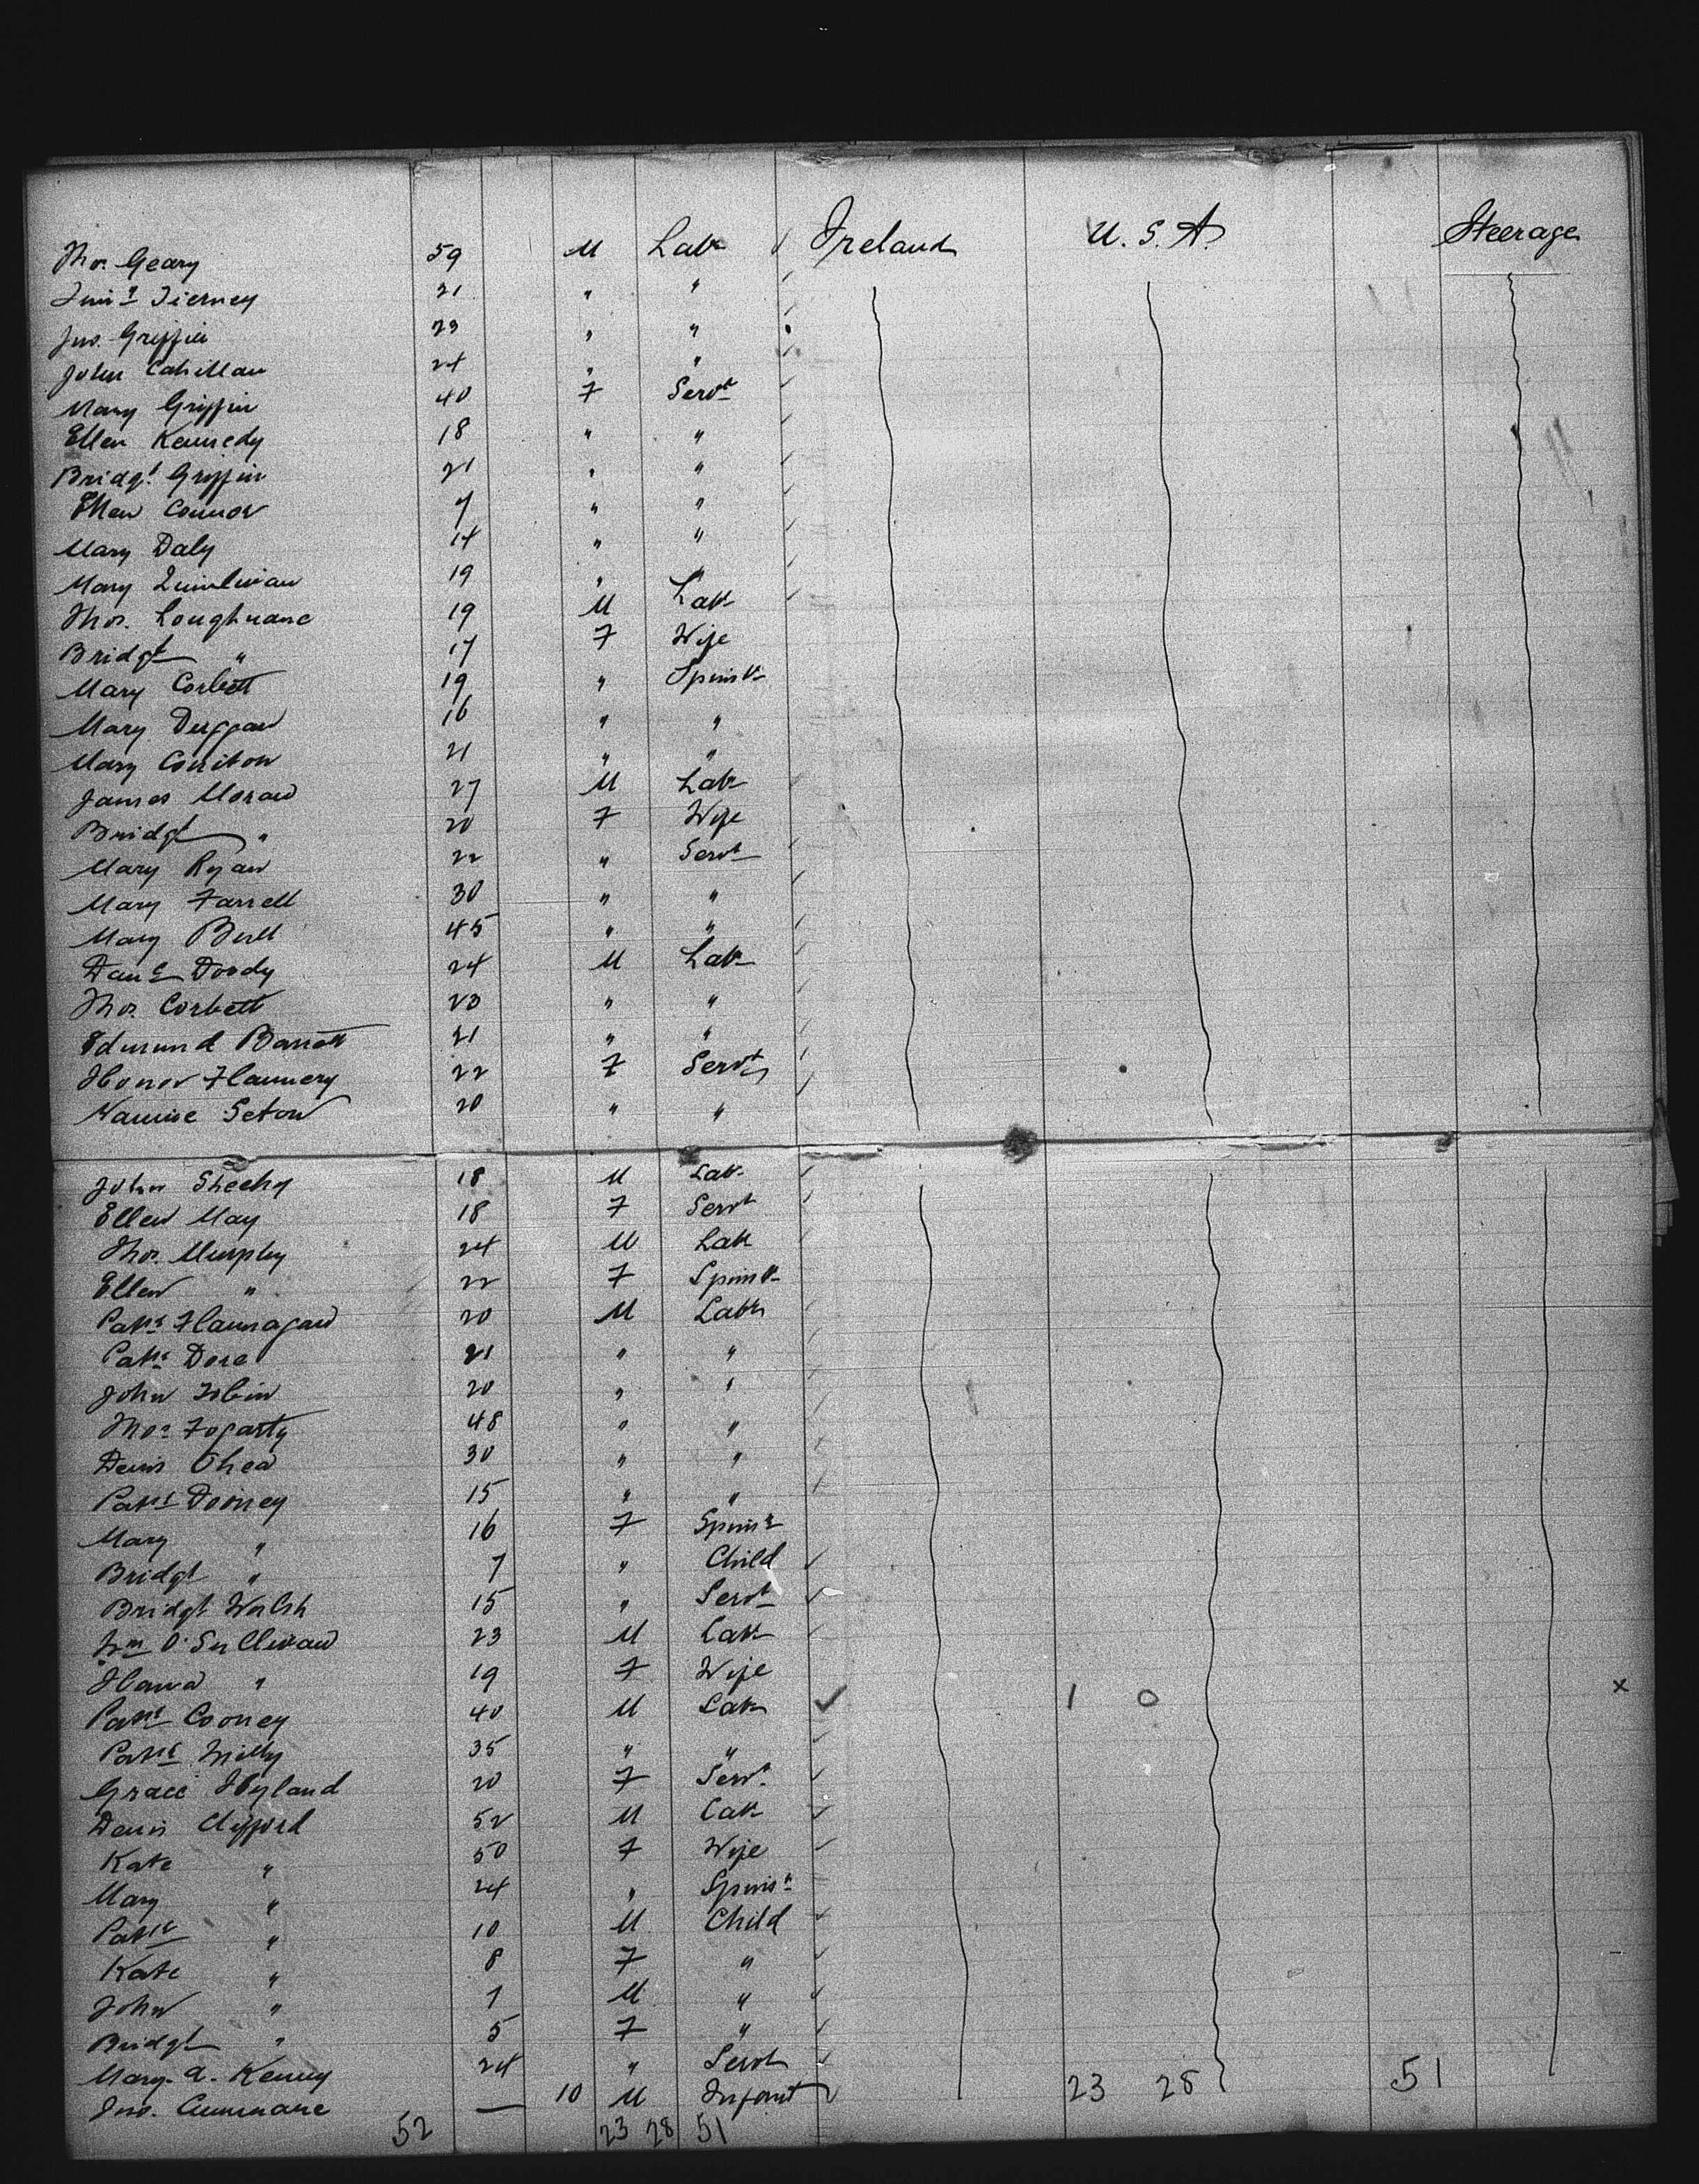 Thos. Geary 59 M Labr Ireland U.S.A. Steerage
Tierney 21 " "
Jno. Griffin 23 " "
John Cahillan 24 " "
Mary Griffin 40 F Servt
Ellen Kennedy 18 " "
Bridgt. Griffin 21 " "
Ellen Connor 7 " "
Mary Daly 14 " "
Mary Quinlivan 19 "
Thos. Loughnane 19 M Labr
Bridgt " 17 F Wife
Mary Corbett 19 " Spinstr
Mary Duggan 16 " "
Mary 21 " "
James Moran 27 M Labr
Bridgt " 20 F Wife
Mary Ryan 22 " Servt
Mary Farrell 30 " "
Mary 45 " "
Danl Doody 24 M Labr
Thos. Corbett 23 " "
Edmund Barrett 21 " "
Honor Flannery 22 F Servt
Seton 20 " "
John Sheehy 18 M Labr
Ellen May 18 F Servt
Thos. Murphy 24 M Labr
Ellen " 22 F Spinstr
Patk Flannagan 20 M Labr
Patk Dore 21 " "
John Tobin 20 " "
Thos Fogarty 48 " "
Denis Ohea 30 " "
Patk Dooney 15 " "
Mary " 16 F Spinsr
Bridgt " 7 " Child
Bridgt Walsh 15 " Servt
Wm O'Sullivan 23 M Labr
Hanna " 19 F Wife
Patk Cooney 40 M Labr 1 0 x
Patk 35 " "
Grace Hyland 20 F Servt
Denis Clifford 52 M Labr
Kate " 50 F Wife
Mary " 24 " Spinsr
Patk " 10 M Child
Kate " 8 F "
John " 7 M "
Bridgt " 5 F "
Mary A. Kenny 24 " Servt
Jno. Cummane — 10 M Infant 23 28 51
52 23 28 51